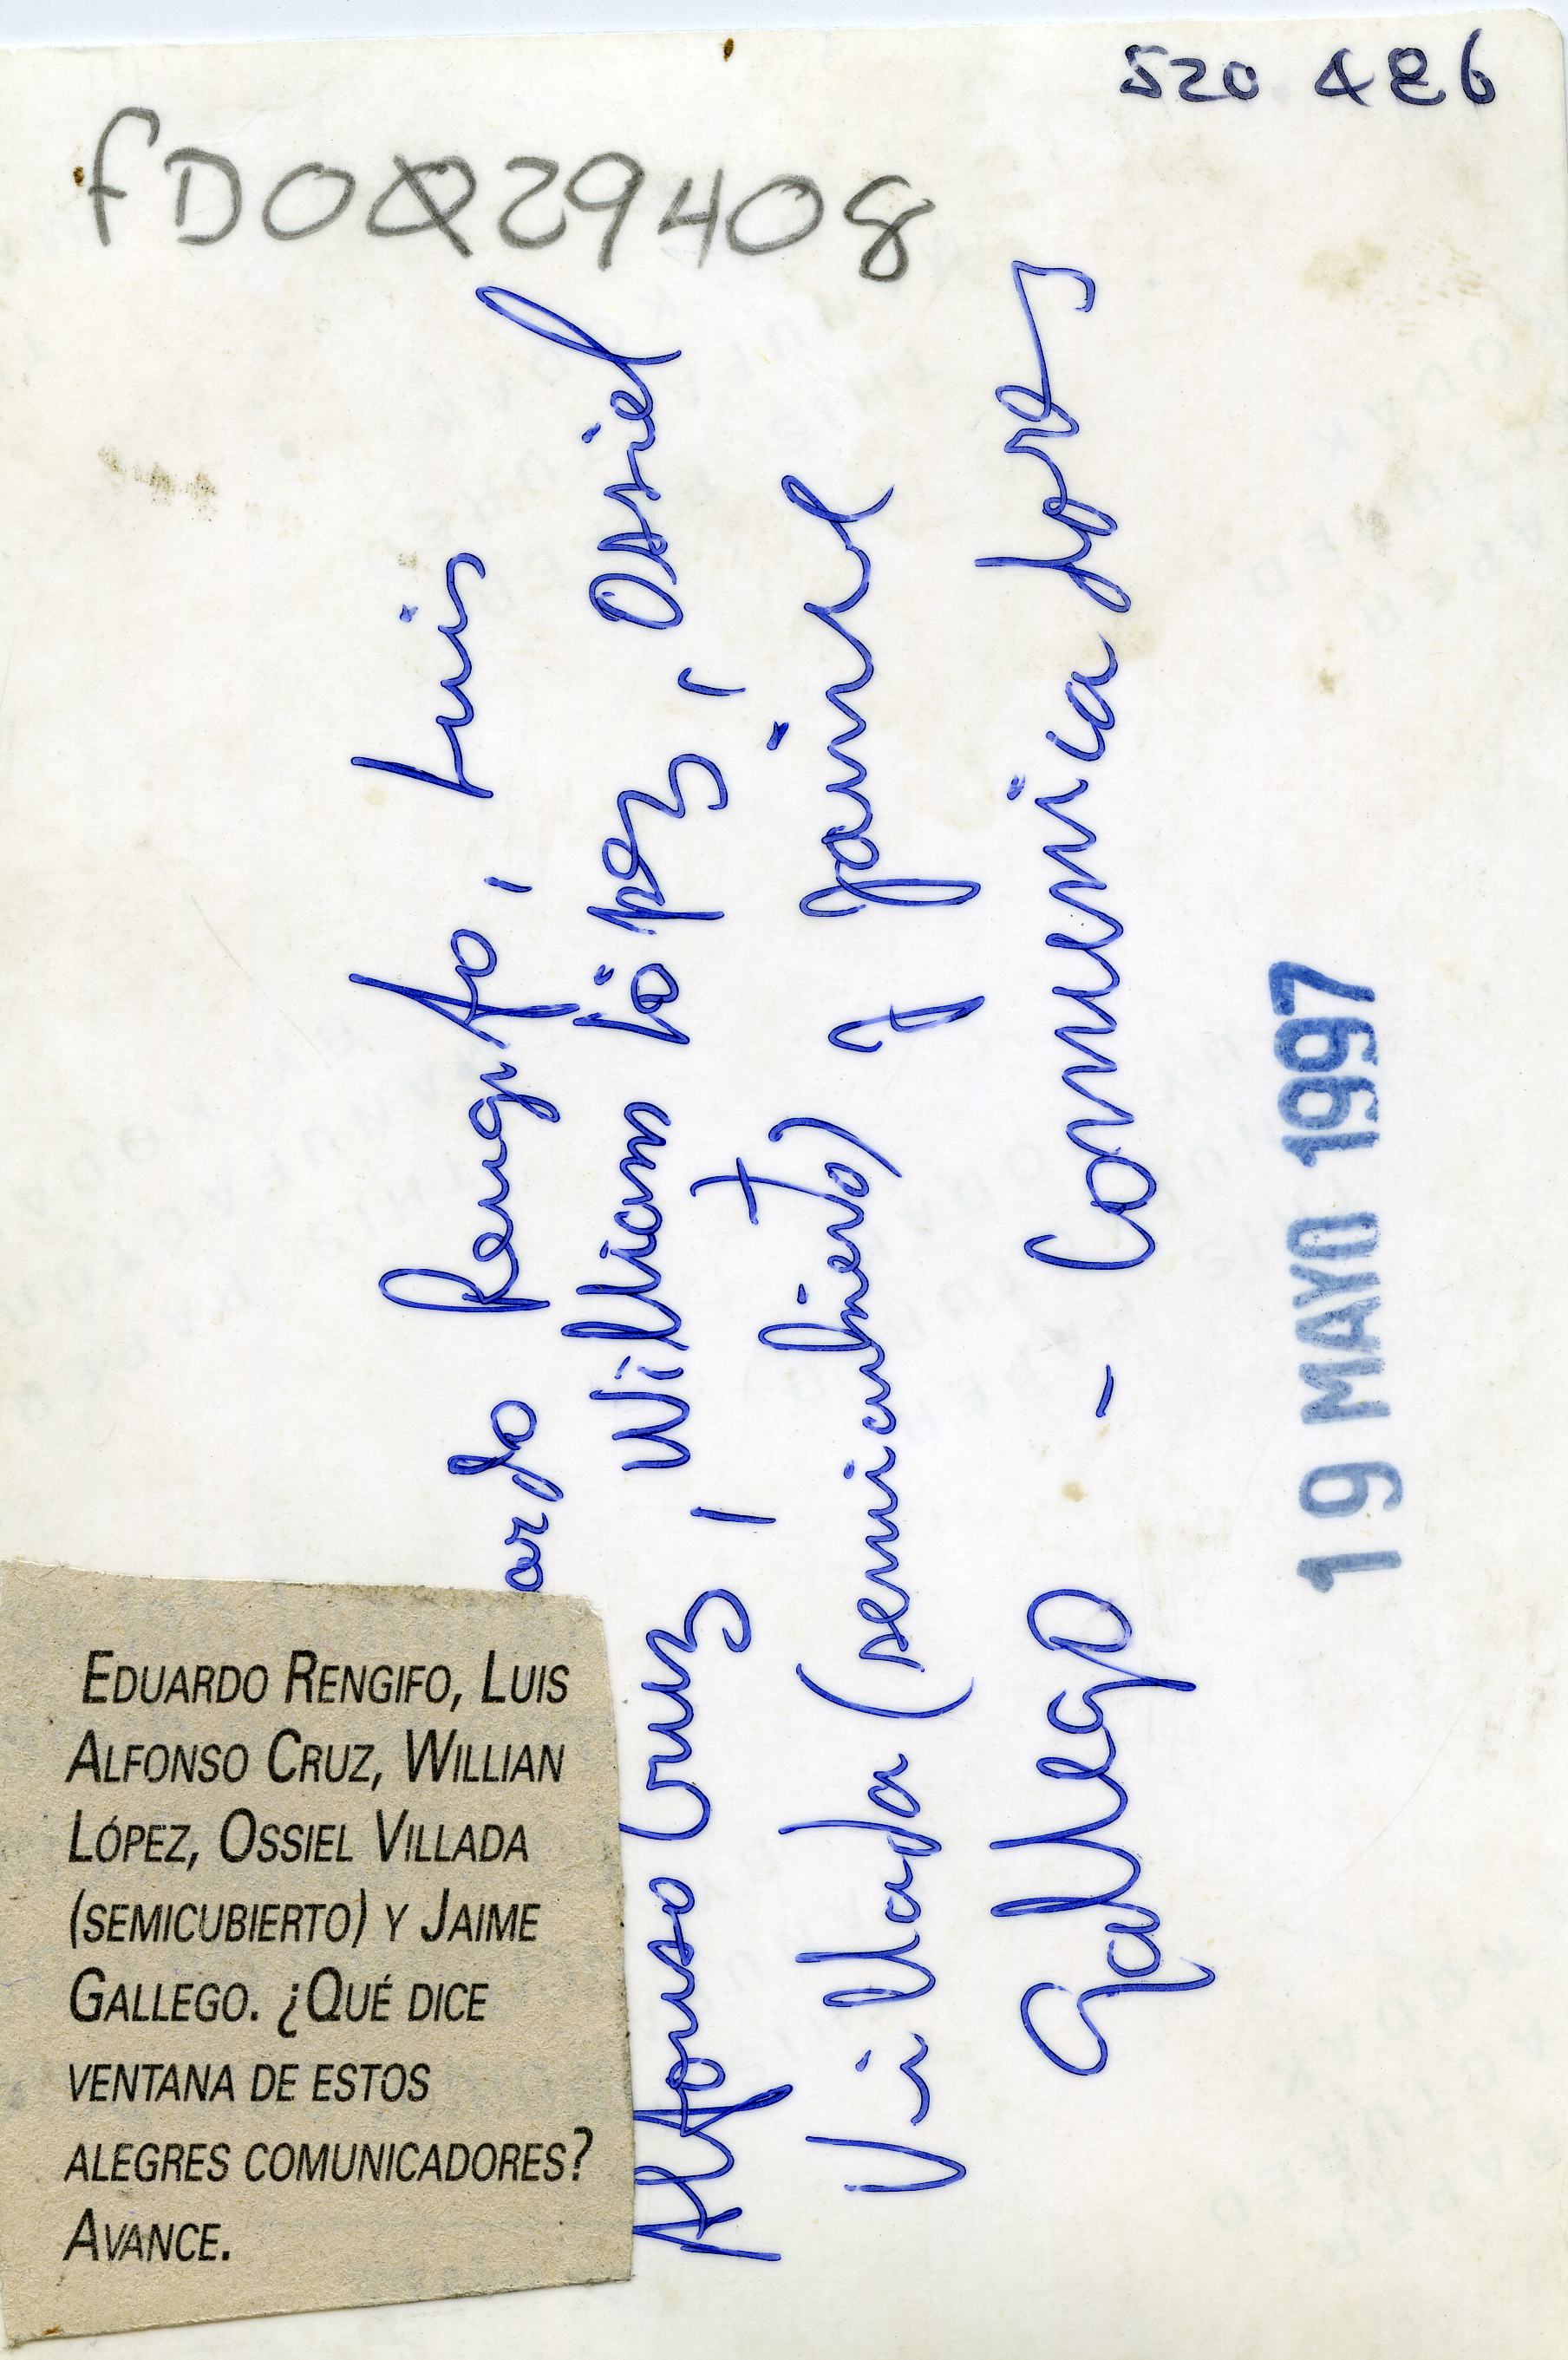 520 486
FD0029408
ardo Rengifo, Luis
Alfonso Cruz, William López, Ossiel
Villada (semicubierto) y Jaime
Gallego - Comunicadores
19 MAYO 1997
EDUARDO RENGIFO, LUIS
ALFONSO CRUZ, WILLIAN
LÓPEZ, OSSIEL VILLADA
(SEMICUBIERTO) Y JAIME
GALLEGO. ¿QUÉ DICE
VENTANA DE ESTOS
ALEGRES COMUNICADORES?
AVANCE.